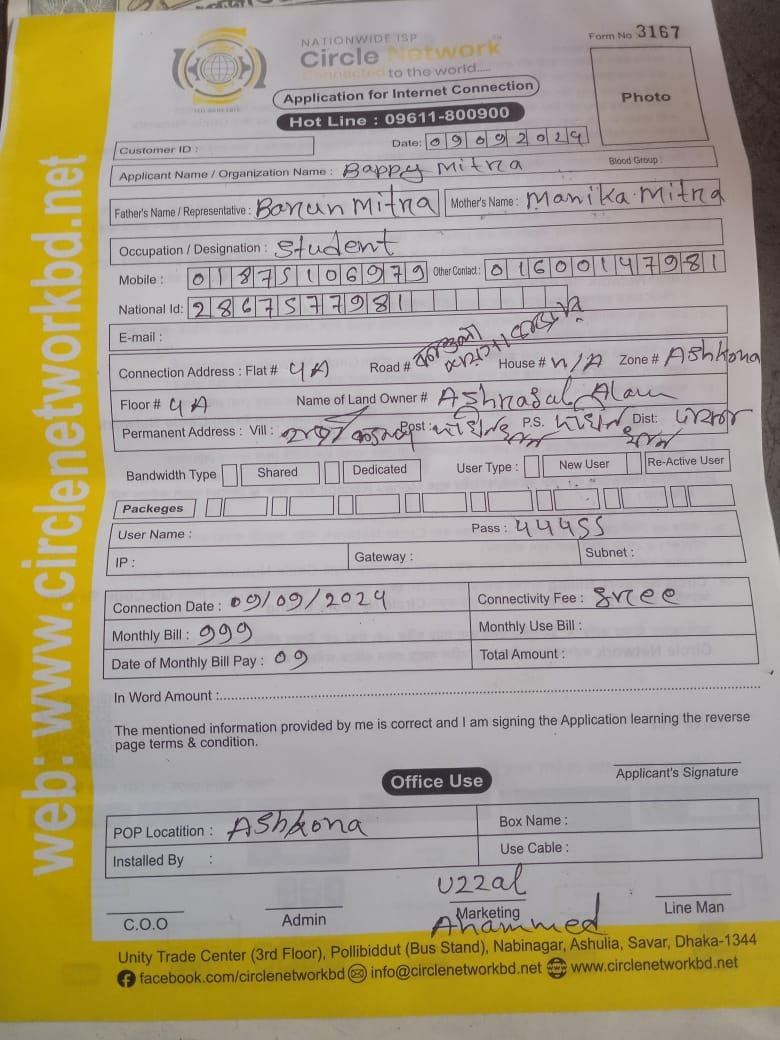 NATIONWIDE ISP
Circle Network
Connected to the world....
Form No 3167
Application for Internet Connection
Hot Line : 09611-800900
Photo
Customer ID :
Date: 09092024
Applicant Name / Organization Name : Bappy Mitra
Blood Group :
Father's Name / Representative : Barun Mitra Mother's Name : Manika Mitra
Occupation / Designation : Student
Mobile : 01875106979 Other Contact : 01600147981
National Id: 2867577981
E-mail :
Connection Address : Flat # 4A Road # House # N/A Zone # Ashkona
Floor # 4A Name of Land Owner # Ashraful Alam
Permanent Address : Vill : Post : P.S. Dist: যশোর
Bandwidth Type Shared Dedicated User Type : New User Re-Active User
Packeges
User Name : Pass : 44455
IP : Gateway : Subnet :
Connection Date : 09/09/2024 Connectivity Fee : free
Monthly Bill : 999 Monthly Use Bill :
Date of Monthly Bill Pay : 09 Total Amount :
In Word Amount :
The mentioned information provided by me is correct and I am signing the Application learning the reverse
page terms & condition.
Applicant's Signature
Office Use
POP Locatition : Ashkona Box Name :
Installed By : Use Cable :
Uzzal
C.O.O Admin Marketing Line Man
Ahammed
Unity Trade Center (3rd Floor), Pollibiddut (Bus Stand), Nabinagar, Ashulia, Savar, Dhaka-1344
facebook.com/circlenetworkbd info@circlenetworkbd.net www.circlenetworkbd.net
web: www.circlenetworkbd.net